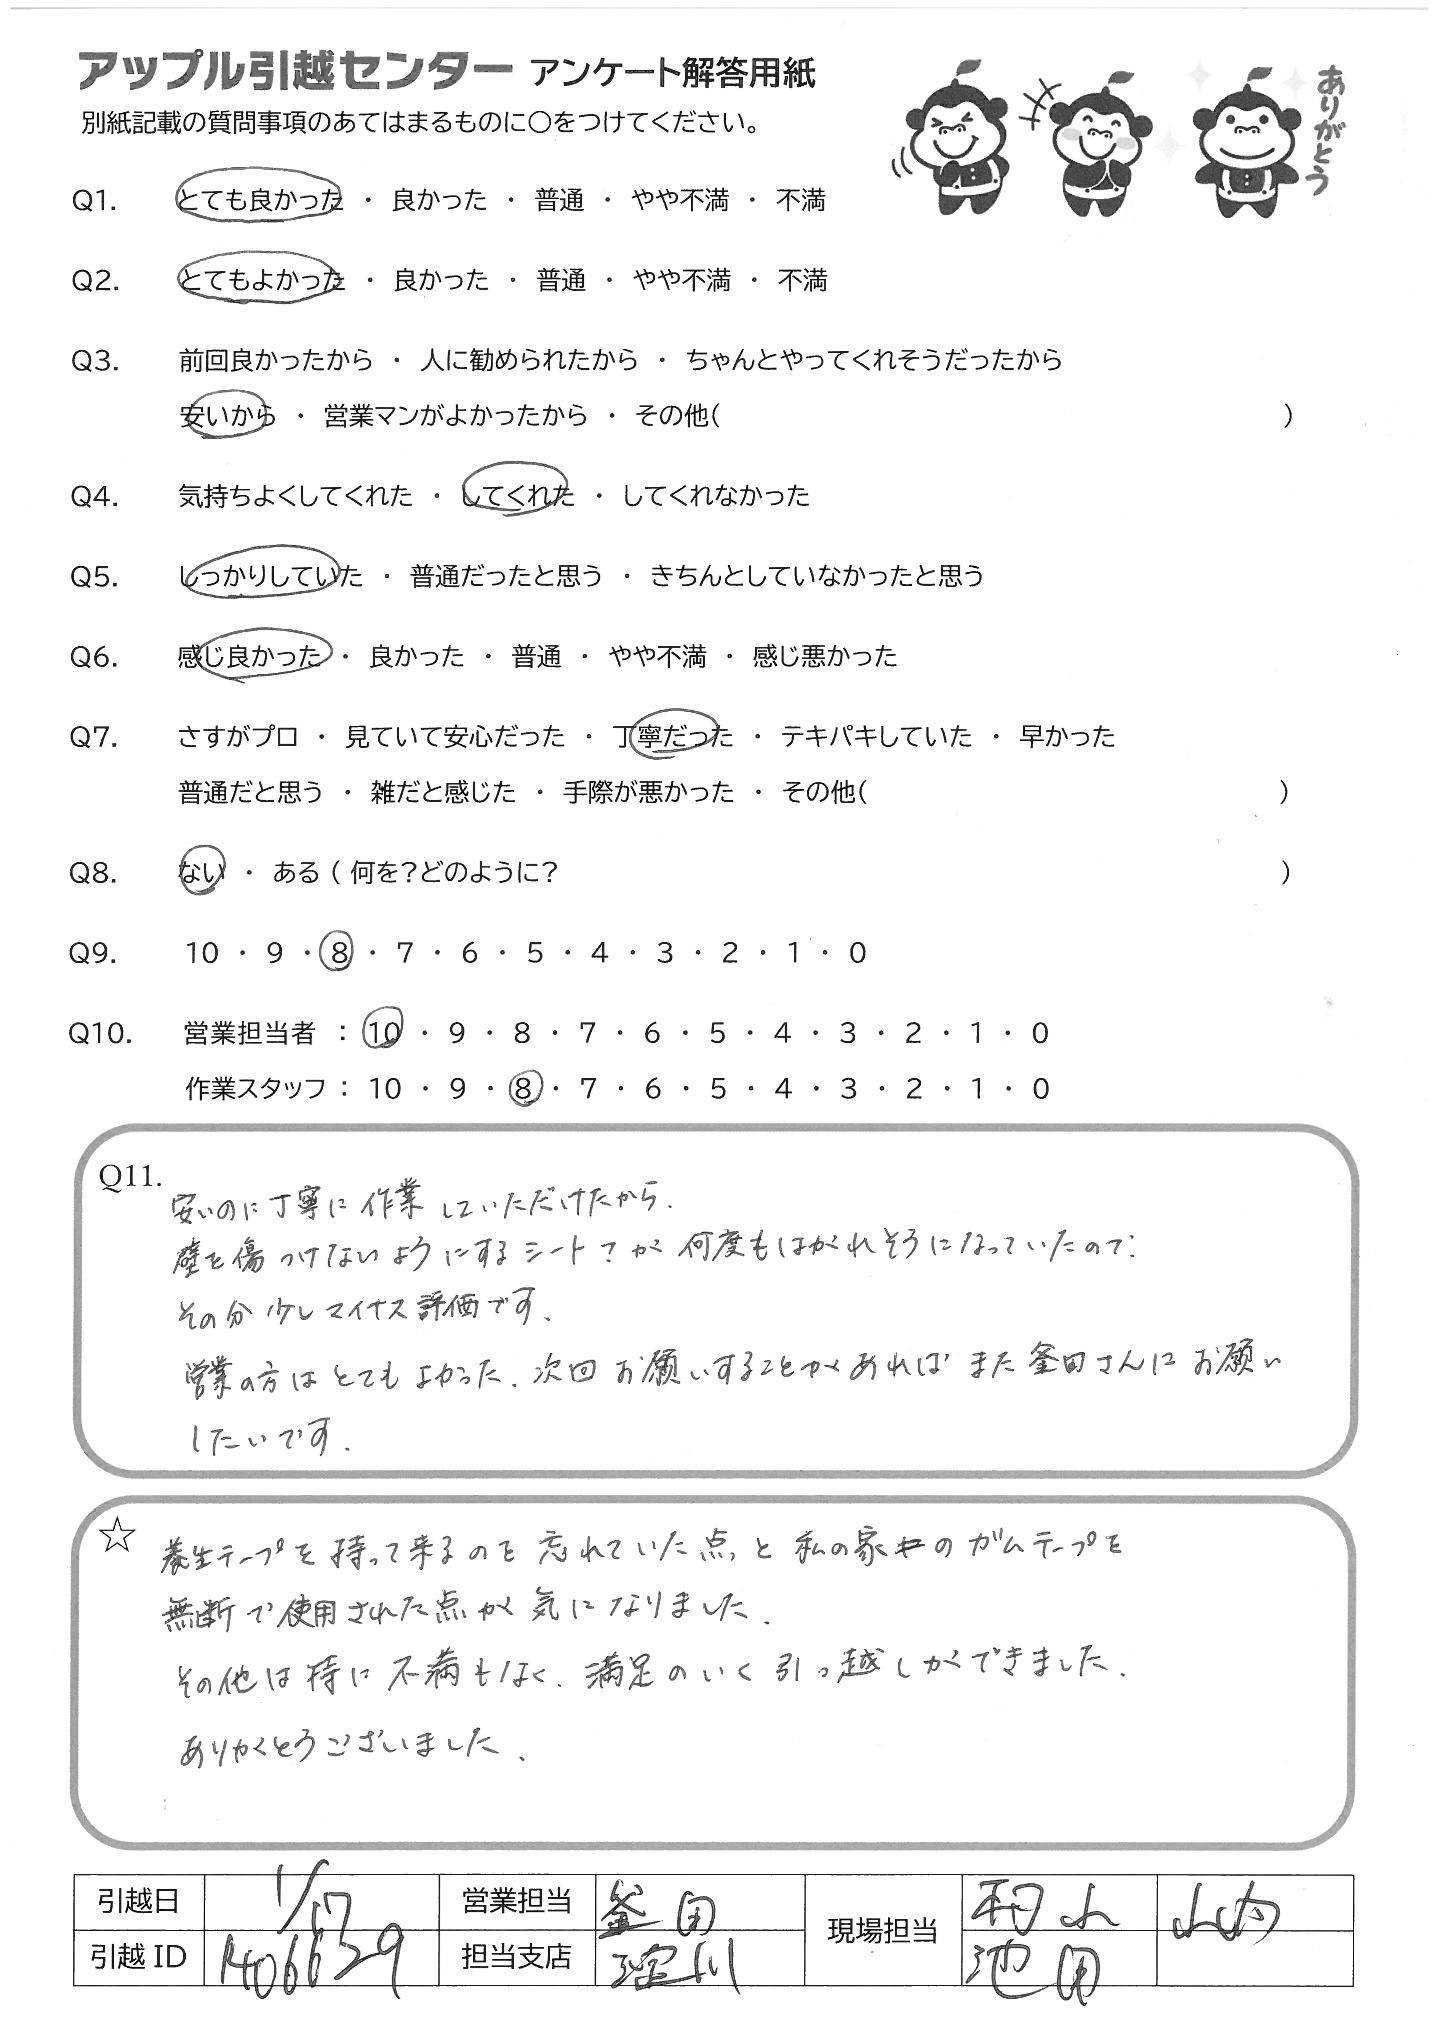 アップル引越センター アンケート解答用紙
別紙記載の質問事項のあてはまるものに〇をつけてください。
ありがとう
Q1. とても良かった ・ 良かった ・ 普通 ・ やや不満 ・ 不満
Q2. とてもよかった ・ 良かった ・ 普通 ・ やや不満 ・ 不満
Q3. 前回良かったから ・ 人に勧められたから ・ ちゃんとやってくれそうだったから
安いから ・ 営業マンがよかったから ・ その他( )
Q4. 気持ちよくしてくれた ・ してくれた ・ してくれなかった
Q5. しっかりしていた ・ 普通だったと思う ・ きちんとしていなかったと思う
Q6. 感じ良かった ・ 良かった ・ 普通 ・ やや不満 ・ 感じ悪かった
Q7. さすがプロ ・ 見ていて安心だった ・ 丁寧だった ・ テキパキしていた ・ 早かった
普通だと思う ・ 雑だと感じた ・ 手際が悪かった ・ その他( )
Q8. ない ・ ある ( 何を?どのように? )
Q9. 10 ・ 9 ・ 8 ・ 7 ・ 6 ・ 5 ・ 4 ・ 3 ・ 2 ・ 1 ・ 0
Q10. 営業担当者 : 10 ・ 9 ・ 8 ・ 7 ・ 6 ・ 5 ・ 4 ・ 3 ・ 2 ・ 1 ・ 0
作業スタッフ : 10 ・ 9 ・ 8 ・ 7 ・ 6 ・ 5 ・ 4 ・ 3 ・ 2 ・ 1 ・ 0
Q11.
安いのに丁寧に作業していただけたから.
壁を傷つけないようにするシート?が何度もはがれそうになっていたので.
その分少しマイナス評価です.
営業の方はとてもよかった.次回お願いすることがあればまた釜田さんにお願い
したいです.
☆ 養生テープを持って来るのを忘れていた点と私の家のガムテープを
無断で使用された点が気になりました.
その他は特に不満もなく.満足のいく引っ越しができました.
ありがとうございました.
引越日 1/17 営業担当 釜田 現場担当 村山 山内
引越ID 1406639 担当支店 淀川 池田